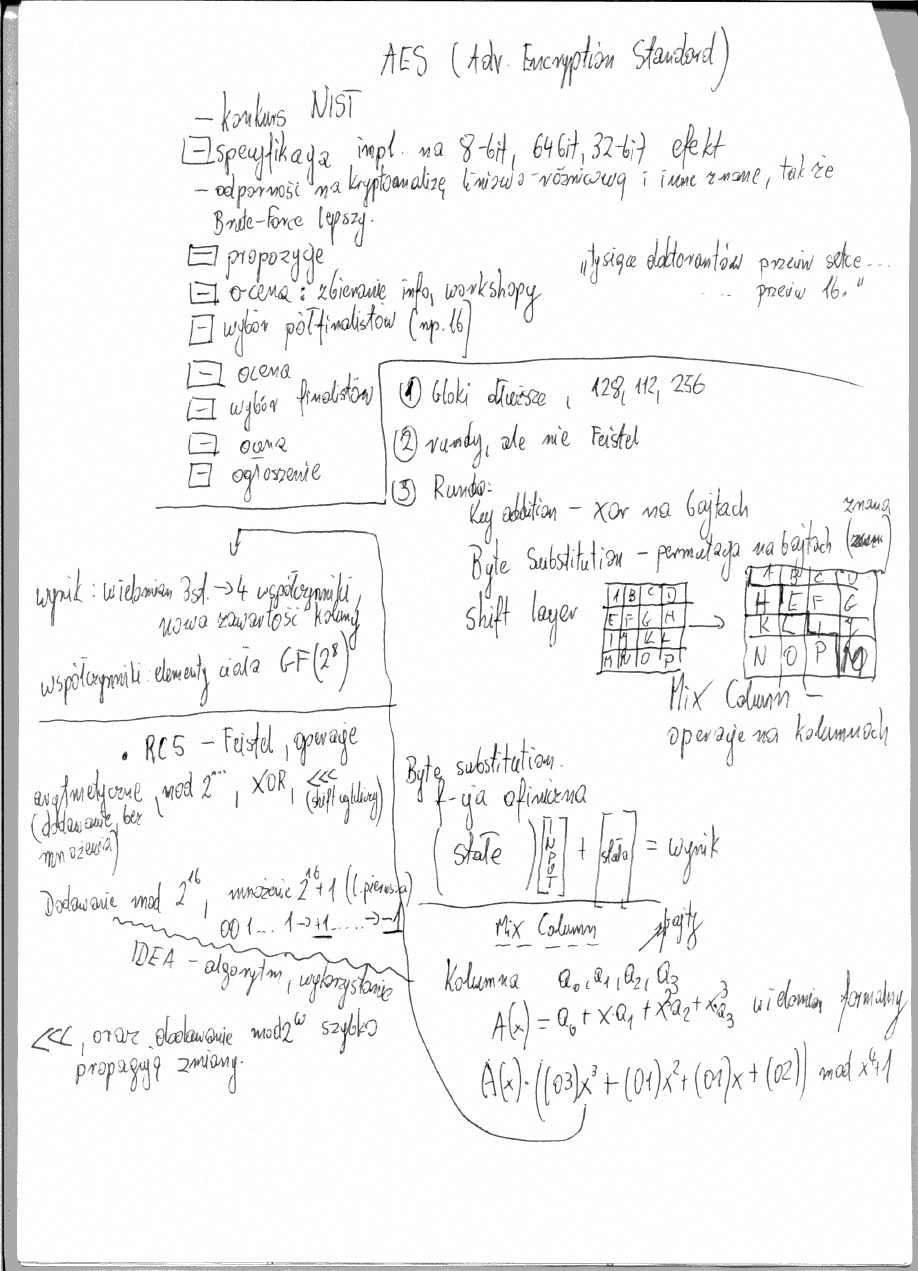 AES (Adv. Encryption Standard)
– konkurs NIST
– specyfikacja impl. na 8-bit, 64bit, 32-bit efekt
– odporność na kryptoanalizę liniowo-różnicową i inne znane, także
Brute-Force lepszy.
– propozycje
– ocena : zbieranie info, workshopy
– wybór półfinalistów (np. 16)
– ocena
– wybór finalistów
– ocena
– ogłoszenie
"tysiące doktorantów przeciw setce ...
... przeciw 16."
① bloki dłuższe, 128, 112, 256
② rundy, ale nie Feistel
③ Runda:
Key addition – xor na bajtach
Byte Substitution – permutacja na bajtach (znana)
shift layer
A B C D
E F G H
I J K L
M N O P
→
A B C D
H E F G
K L I J
N O P M
Mix Column –
operacje na kolumnach
Byte substitution.
f-cja afiniczna
(stałe) [INPUT] + [stała] = wynik
Mix Column
bajty
Kolumna a₀, a₁, a₂, a₃
A(x) = a₀ + x·a₁ + x²a₂ + x³·a₃ wielomian formalny
A(x) · ((03)x³ + (01)x² + (01)x + (02)) mod x⁴+1
wynik : wielomian 3st. → 4 współczynniki,
nowa zawartość kolumny
współczynniki : elementy ciała GF(2⁸)
• RC5 – Feistel, operacje
arytmetyczne, mod 2^..., XOR, <<<
(dodawanie, bez mnożenia)
(shift cykliczny)
Dodawanie mod 2¹⁶, mnożenie 2¹⁶+1 (l. pierwsza)
00 1 .... 1 → +1 ..... → –1
IDEA – algorytm, wykorzystanie
<<<, oraz dodawanie mod 2^w szybko
propagują zmiany.